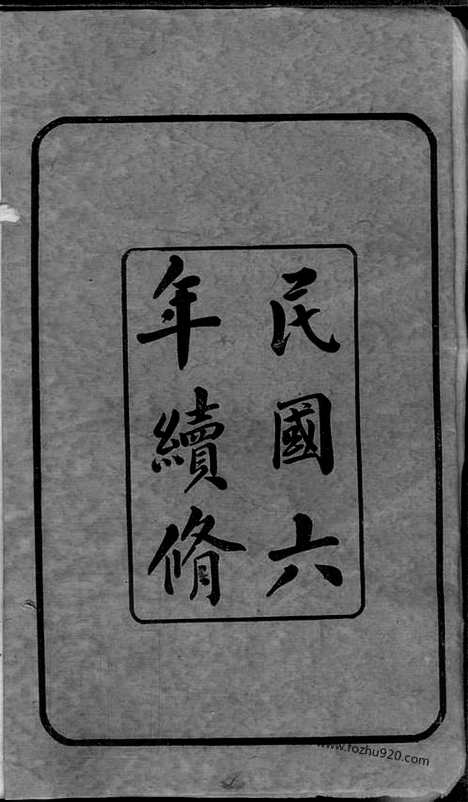 民國六
年續脩
www.fozhu920.com